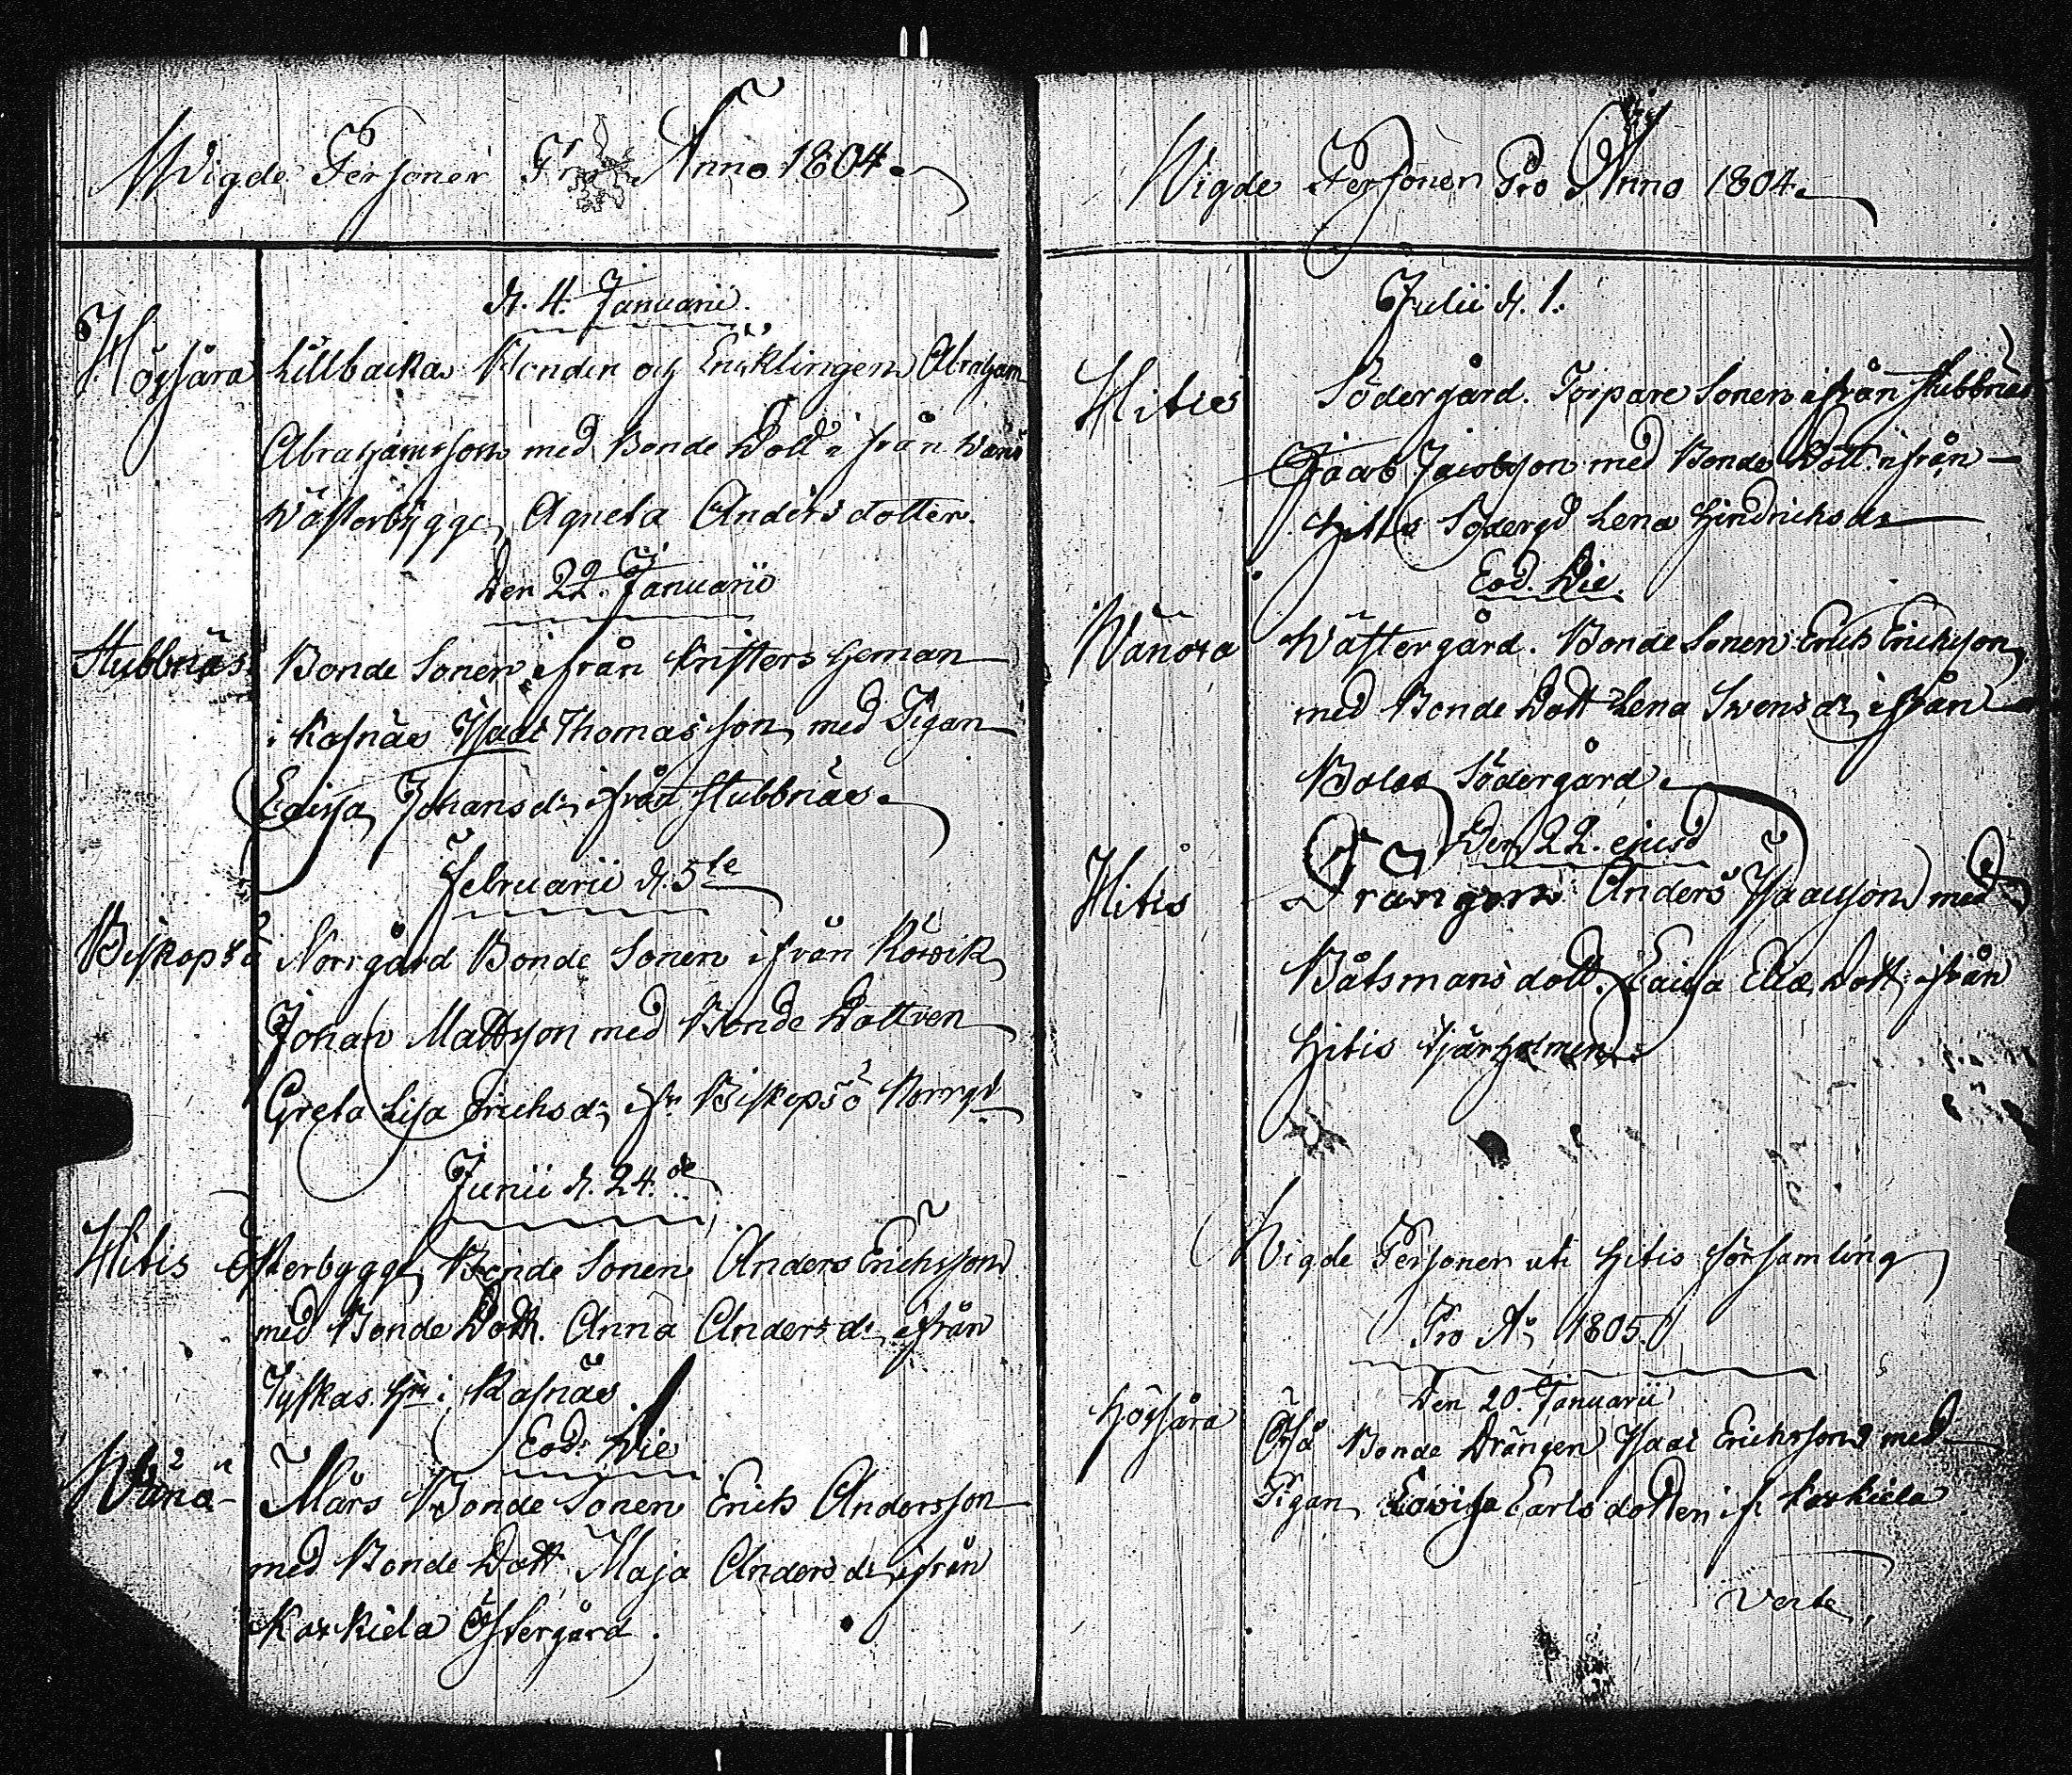 Wigde Personer Pro Anno 1804.
d. 4. Januarii.
Högsåra Lillbackas Bonden och Enklingen Abraham
Abrahamsson med Bonde Dott. ifrån Wänö
Wästerbygge, Agneta Andersdotter.
Den 22. Januarii
Stubbnäs Bonde Sonen ifrån Kristers heman
i Kasnäs Isaac Thomasson med Pigan
Caisa Johansdr ifrån Stubbnäs.
Februarii d. 5te
Biskopsö Norrgård Bonde Sonen ifrån Röwik
Johan Mattsson med Bonde Dottren
Greta Lisa Erichsdr ifn Biskopsö Norrgd
Junii d. 24de
Hitis Österbygge Bonde Sonen Anders Erichsson
med Bonde Dott. Anna Andersdr ifrån
Tyskas hm i Kasnäs.
Eod. Die
Wänö Mårs Bonde Sonen Erich Andersson
med Bonde Dott Maja Andersdr ifrån
Kaxkiela Östergård.
Wigde Personer Pro Anno 1804.
Julii d. 1.
Hitis Södergård. Torpare Sonen ifrån Stubbnäs
Jacob Jacobsson med Bonde Dott. ifrån
Hitis Södergd Lena Hindrichsdr
Eod. Die
Wänoxa Wästergård. Bonde Sonen Erich Erichsson
med Bonde Dott Lena Swensdr ifrån
Bolax Södergård.
Den 22. ejusd
Hitis Drängen Anders Isaacsson med
Båtsmans dott. Caisa Elia Dott ifrån
Hitis Tjärholmen
Wigde Personer uti Hitis församling
Pro Ao 1805.
Den 20. Januarii
Högsåra Öhså Bonde Drängen Isaac Erichsson med
Pigan Lowisa Carlsdotter if. Kaxkiela
Verte.